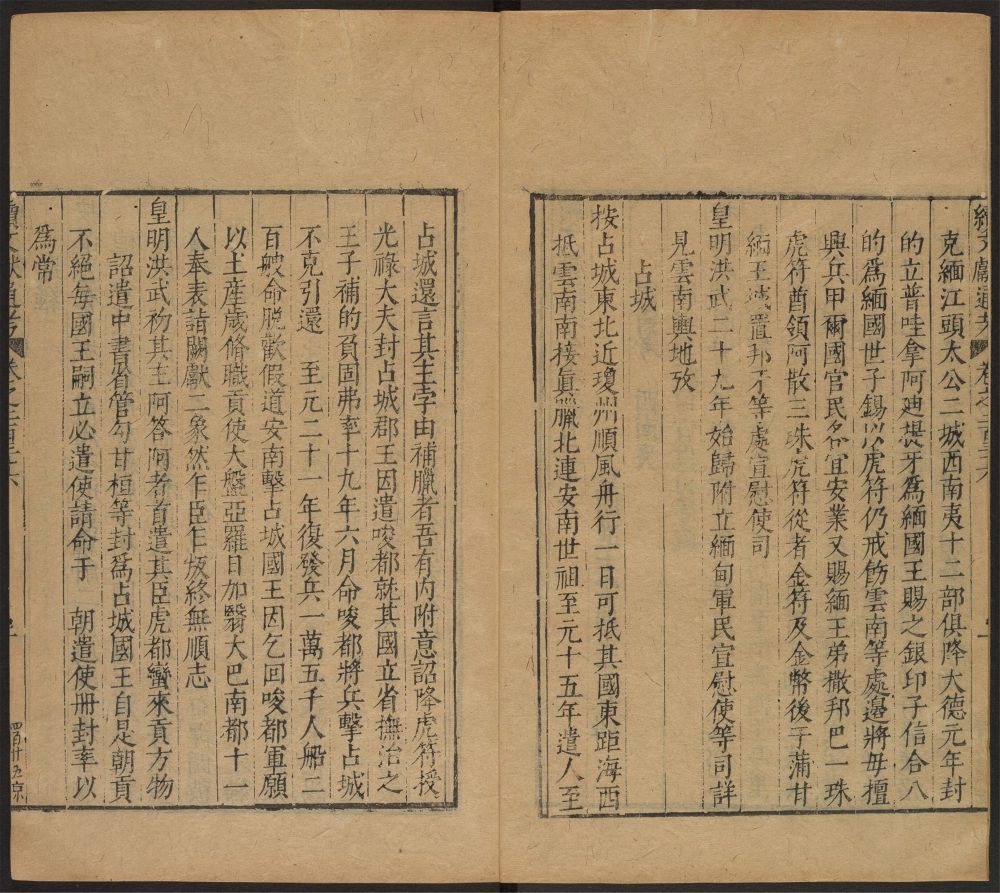 克緬江頭太公二城西南夷十二部俱降大德元年封
的立普哇拿阿廸提牙爲緬國王賜之銀印子信合八
的爲緬國世子錫以虎符仍戒飭雲南等處邊將毋擅
興兵甲爾國官民各宜安業又賜緬王弟撒邦巴一珠
虎符酋領阿散三珠虎符從者金符及金幣後于蒲甘
緬王城置邦牙等處宣慰使司
皇明洪武二十九年始歸附立緬甸軍民宣慰使等司詳
見雲南輿地攷
占城
按占城東北近瓊州順風舟行一日可抵其國東距海西
抵雲南南接眞臘北連安南世祖至元十五年遣人至
占城還言其主孛由補臘者吾有内附意詔降虎符授
光祿大夫封占城郡王因遣唆都就其國立省撫治之
王子補的負固弗率十九年六月命唆都將兵擊占城
不克引還 至元二十一年復發兵一萬五千人船二
百艘命脱歡假道安南擊占城國王因乞回唆都軍願
以土産歲脩職貢使大盤亞羅日加翳大巴南都十一
人奉表詣闕獻二象然乍臣乍叛終無順志
皇明洪武初其主阿答阿者首遣其臣虎都蠻來貢方物
詔遣中書省管勾甘桓等封爲占城國王自是朝貢
不絕每國王嗣立必遣使請命于 朝遣使冊封率以
爲常